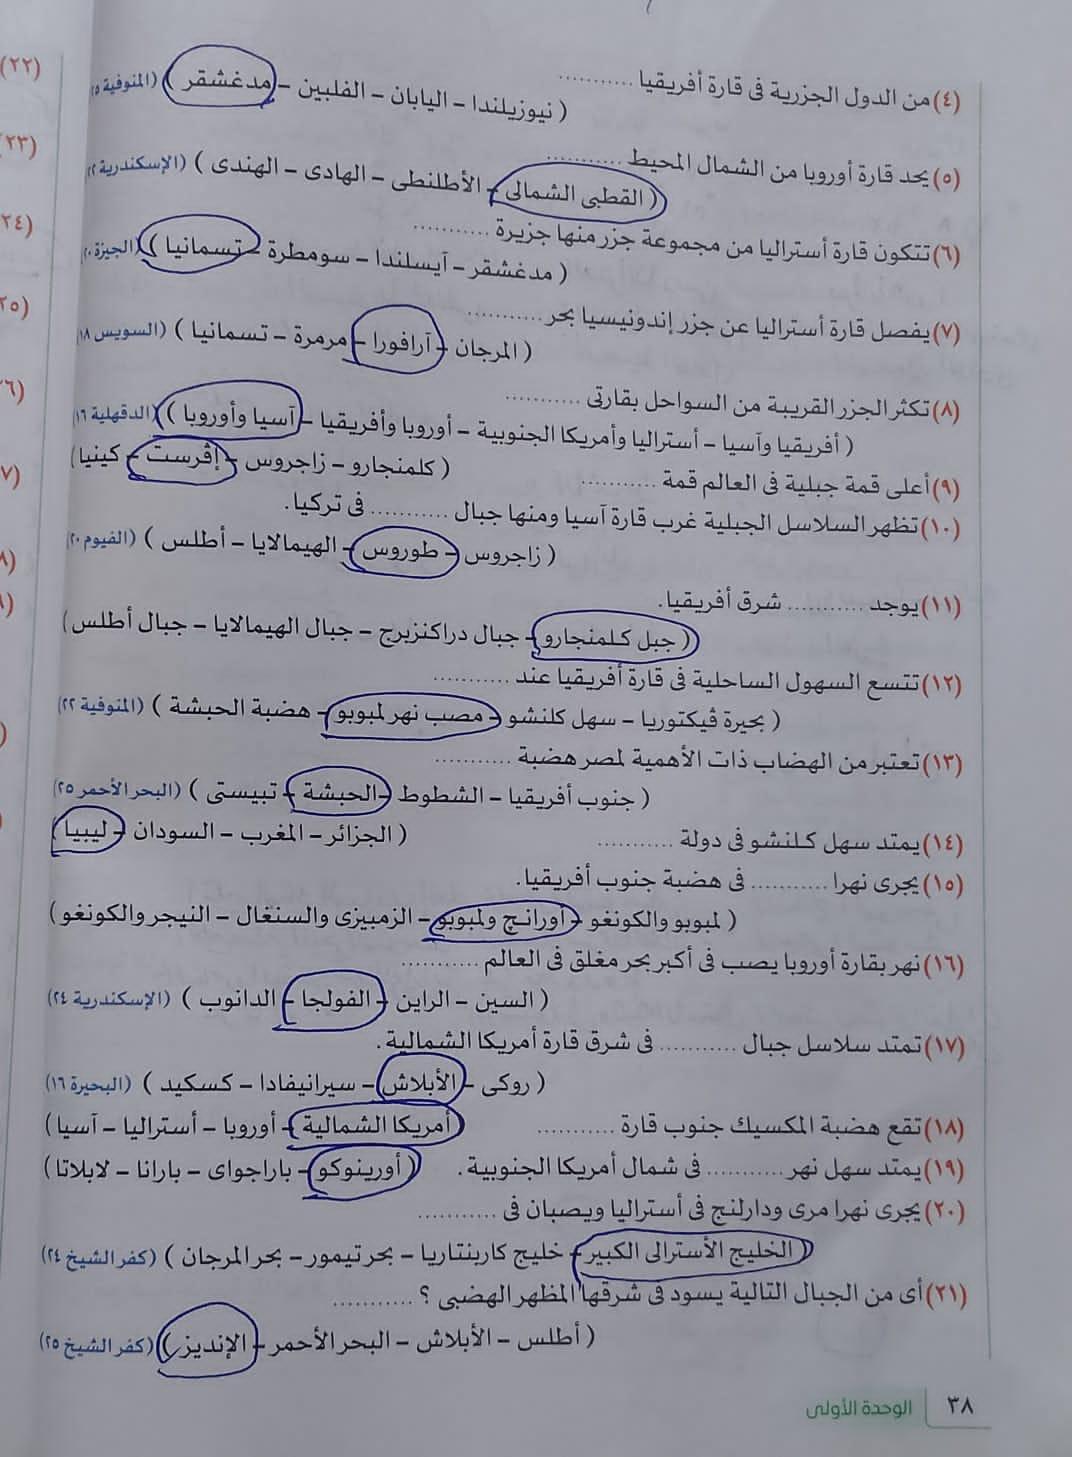 (٤) من الدول الجزرية فى قارة أفريقيا ...........
( نيوزيلندا – اليابان – الفلبين – مدغشقر ) (المنوفية
(٥) يحد قارة أوروبا من الشمال المحيط ...........
( القطبى الشمالى – الأطلنطى – الهادى – الهندى ) (الإسكندرية ٢٢
(٦) تتكون قارة أستراليا من مجموعة جزر منها جزيرة ...........
( مدغشقر – آيسلندا – سومطرة – تسمانيا ) (الجيزة ٢٠)
(٧) يفصل قارة أستراليا عن جزر إندونيسيا بحر ...........
( المرجان – آرافورا – مرمرة – تسمانيا ) (السويس ١٨)
(٨) تكثر الجزر القريبة من السواحل بقارتى ...........
( أفريقيا وآسيا – أستراليا وأمريكا الجنوبية – أوروبا وأفريقيا – آسيا وأوروبا ) (الدقهلية ١٦)
(٩) أعلى قمة جبلية فى العالم قمة ........... ( كلمنجارو – زاجروس – إڤرست – كينيا )
(١٠) تظهر السلاسل الجبلية غرب قارة آسيا ومنها جبال ........... فى تركيا.
( زاجروس – طوروس – الهيمالايا – أطلس ) (الفيوم ٢٠)
(١١) يوجد ........... شرق أفريقيا.
( جبل كلمنجارو – جبال دراكنزبرج – جبال الهيمالايا – جبال أطلس )
(١٢) تتسع السهول الساحلية فى قارة أفريقيا عند ...........
( بحيرة ڤيكتوريا – سهل كلنشو – مصب نهر لمبوبو – هضبة الحبشة ) (المنوفية ٢٢)
(١٣) تعتبر من الهضاب ذات الأهمية لمصر هضبة ...........
( جنوب أفريقيا – الشطوط – الحبشة – تبيستى ) (البحر الأحمر ٢٥)
(١٤) يمتد سهل كلنشو فى دولة ........... ( الجزائر – المغرب – السودان – ليبيا )
(١٥) يجرى نهرا ........... فى هضبة جنوب أفريقيا.
( لمبوبو والكونغو – أورانچ ولمبوبو – الزمبيزى والسنغال – النيجر والكونغو )
(١٦) نهر بقارة أوروبا يصب فى أكبر بحر مغلق فى العالم ...........
( السين – الراين – الفولجا – الدانوب ) (الإسكندرية ٢٤)
(١٧) تمتد سلاسل جبال ........... فى شرق قارة أمريكا الشمالية.
( روكى – الأبلاش – سيرانيفادا – كسكيد ) (البحيرة ١٦)
(١٨) تقع هضبة المكسيك جنوب قارة ........... ( أمريكا الشمالية – أوروبا – أستراليا – آسيا )
(١٩) يمتد سهل نهر ........... فى شمال أمريكا الجنوبية. ( أورينوكو – باراجواى – بارانا – لابلاتا )
(٢٠) يجرى نهرا مرى ودارلنج فى أستراليا ويصبان فى ...........
( الخليج الأسترالى الكبير – خليج كاربنتاريا – بحر تيمور – بحر المرجان ) (كفر الشيخ ٢٤)
(٢١) أى من الجبال التالية يسود فى شرقها المظهر الهضبى ؟ ...........
( أطلس – الأبلاش – البحر الأحمر – الإنديز ) (كفر الشيخ ٢٥)
٣٨ الوحدة الأولى
(٢٢)
(٢٣)